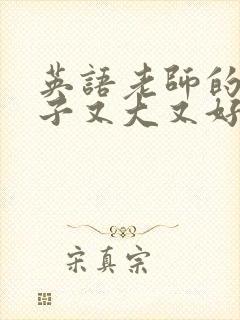 英語老師的
子又大又好
宋真宗